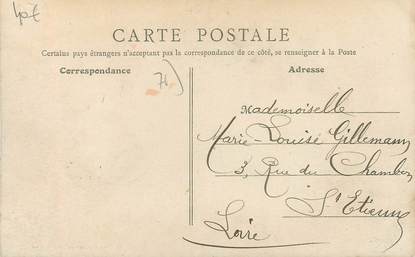 40€
CARTE POSTALE
Certains pays étrangers n'acceptant pas la correspondance de ce côté, se renseigner à la Poste
Correspondance
Adresse
74)
Mademoiselle
Marie-Louise Gillemann
3, Rue du Chambon
St Etienne
Loire